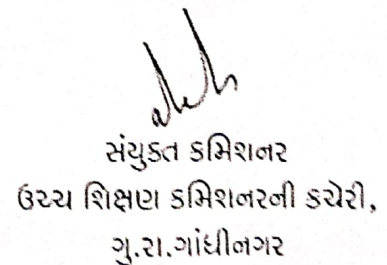 સંયુક્ત કમિશનર
ઉચ્ચ શિક્ષણ કમિશનરની કચેરી,
ગુ.રા.ગાંધીનગર